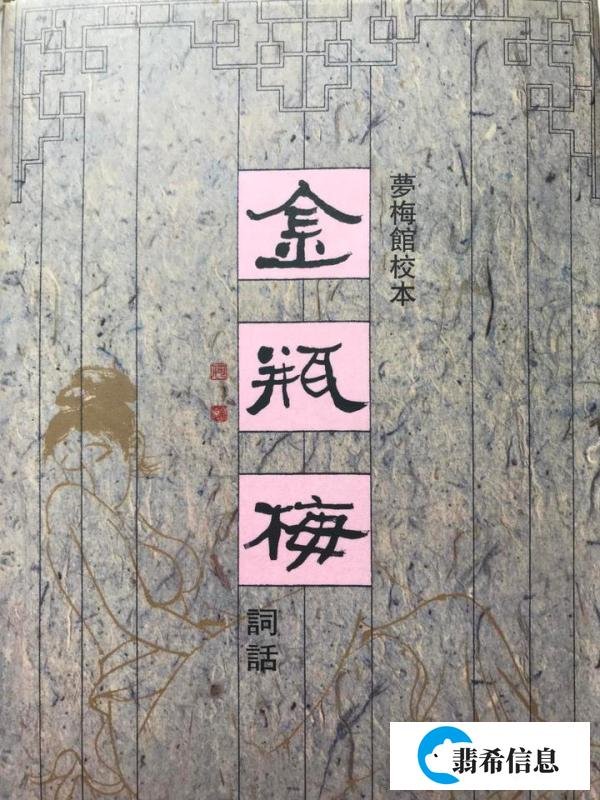 夢梅館校本
金
瓶
梅
詞話
翡希信息